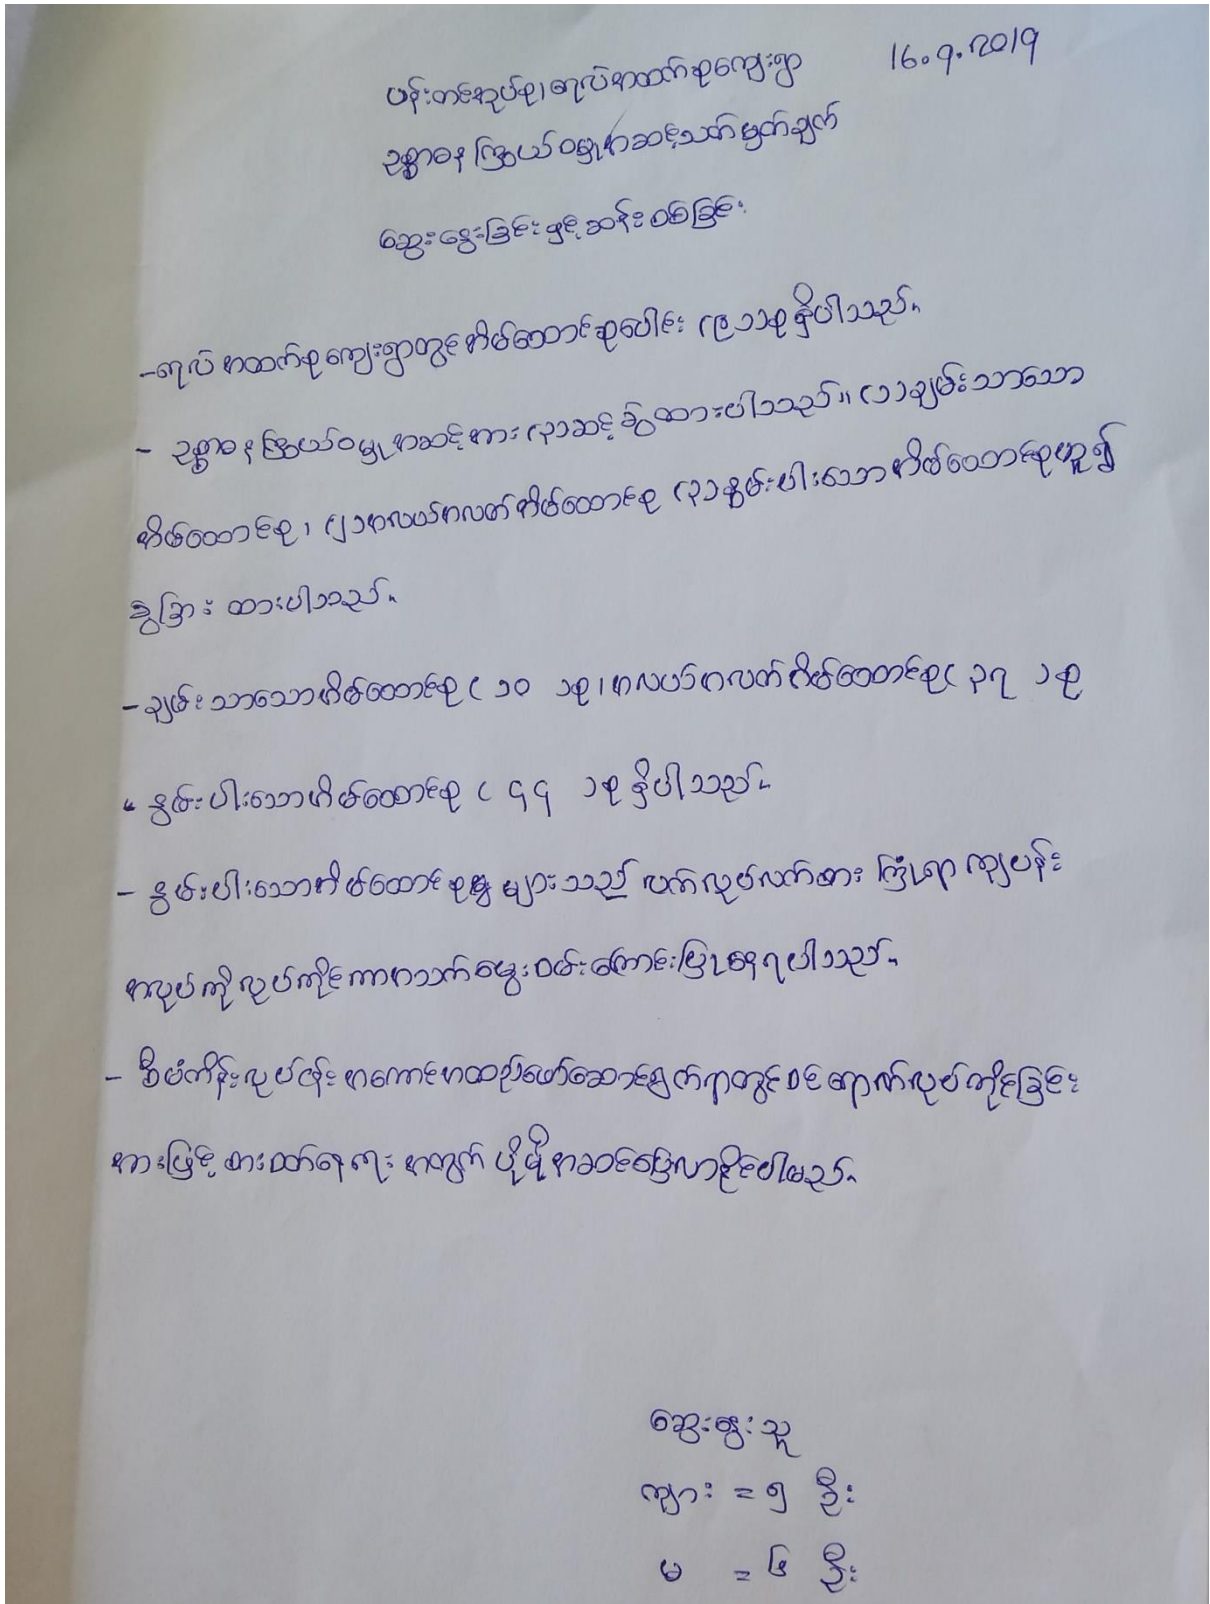 16.9.2019
ပန်းတင်အုပ်စု၊ ရေလဲအထက်စုကျေးရွာ
ဥစ္စာဓန ကြွယ်ဝမှုအဆင့်သတ်မှတ်ချက်
ဆွေးနွေးခြင်းနှင့်ဆန်းစစ်ခြင်း
-ရေလဲ အထက်စုကျေးရွာတွင်အိမ်ထောင်စုပေါင်း (၉၁)စုရှိပါသည်။
- ဥစ္စာဓနကြွယ်ဝမှုအဆင့်အား (၃)ဆင့်ခွဲထားပါသည်။ (၁)ချမ်းသာသော
အိမ်ထောင်စု၊ (၂)အလယ်အလတ်အိမ်ထောင်စု (၃)နွမ်းပါးသောအိမ်ထောင်စုဟူ၍
ခွဲခြား ထားပါသည်။
- ချမ်းသာသောအိမ်ထောင်စု ( ၁၀ )စု၊ အလယ်အလတ်အိမ်ထောင်စု( ၃၇ )စု
" နွမ်းပါးသောအိမ်ထောင်စု ( ၄၄ )စု ရှိပါသည်။
- နွမ်းပါးသောအိမ်ထောင်စု များသည် လက်လုပ်လက်စား ကြုံရာ ကျပန်း
အလုပ်ကို လုပ်ကိုင်ကာအသက်မွေးဝမ်းကြောင်းပြုနေရပါသည်။
- စီမံကိန်းလုပ်ငန်းအကောင်အထည်ဖော်ဆောင်ရွက်ရာတွင်ဝင်ရောက်လုပ်ကိုင်ခြင်း
အားဖြင့်စားဝတ်နေရေး အတွက် ပိုမိုအဆင်ပြေလာနိုင်ပါမည်။
ဆွေးနွေးသူ
ကျား = ၅ ဦး
မ = ၆ ဦး